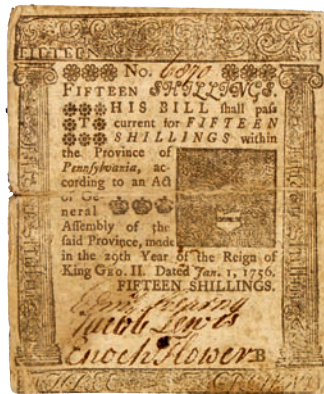 FIFTEEN
No. 6870
FIFTEEN SHILLINGS.
THIS BILL shall pass
current for FIFTEEN
SHILLINGS within
the Province of
Pennsylvania, ac-
cording to an Act
of Ge-
neral
Assembly of the
said Province, made
in the 29th Year of the Reign of
King GEO. II. Dated Jan. 1, 1756.
FIFTEEN SHILLINGS.
Kearny
Jacob Lewis
Enoch Flower B